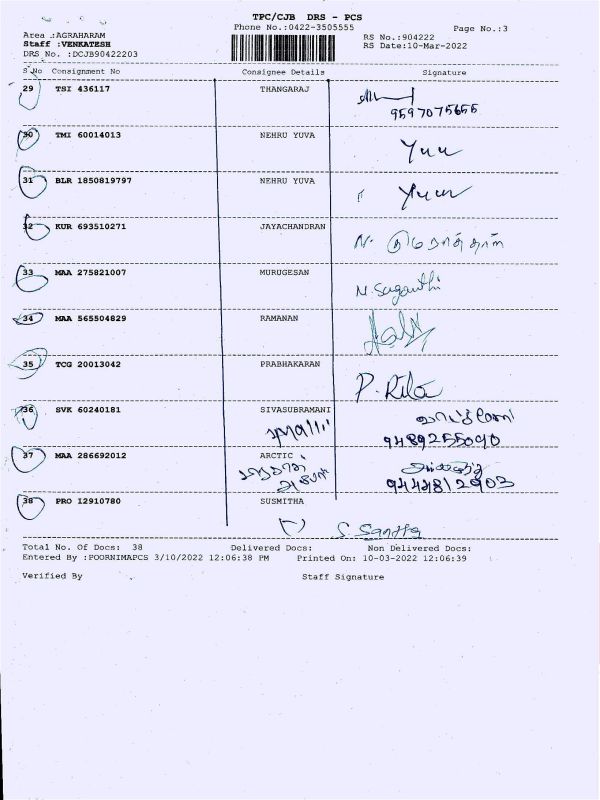 TPC/CJB DRS - PCS
Phone No.:0422-3505555
Page No.:3
Area :AGRAHARAM
RS No.:904222
Staff :VENKATESH
RS Date:10-Mar-2022
DRS No. :DCJB90422203
S No Consignment No Consignee Details Signature
29 TSI 436117 THANGARAJ
9597075655
30 TMI 60014013 NEHRU YUVA
31 BLR 1850819797 NEHRU YUVA
32 KUR 693510271 JAYACHANDRAN
33 MAA 275821007 MURUGESAN
N. Suganthi
34 MAA 565504829 RAMANAN
35 TCG 20013042 PRABHAKARAN
P. Rila
36 SVK 60240181 SIVASUBRAMANI
9489255090
37 MAA 286692012 ARCTIC
9444812903
38 PRO 12910780 SUSMITHA
Total No. Of Docs: 38 Delivered Docs: Non Delivered Docs:
Entered By :POORNIMAPCS 3/10/2022 12:06:38 PM Printed On: 10-03-2022 12:06:39
Verified By Staff Signature